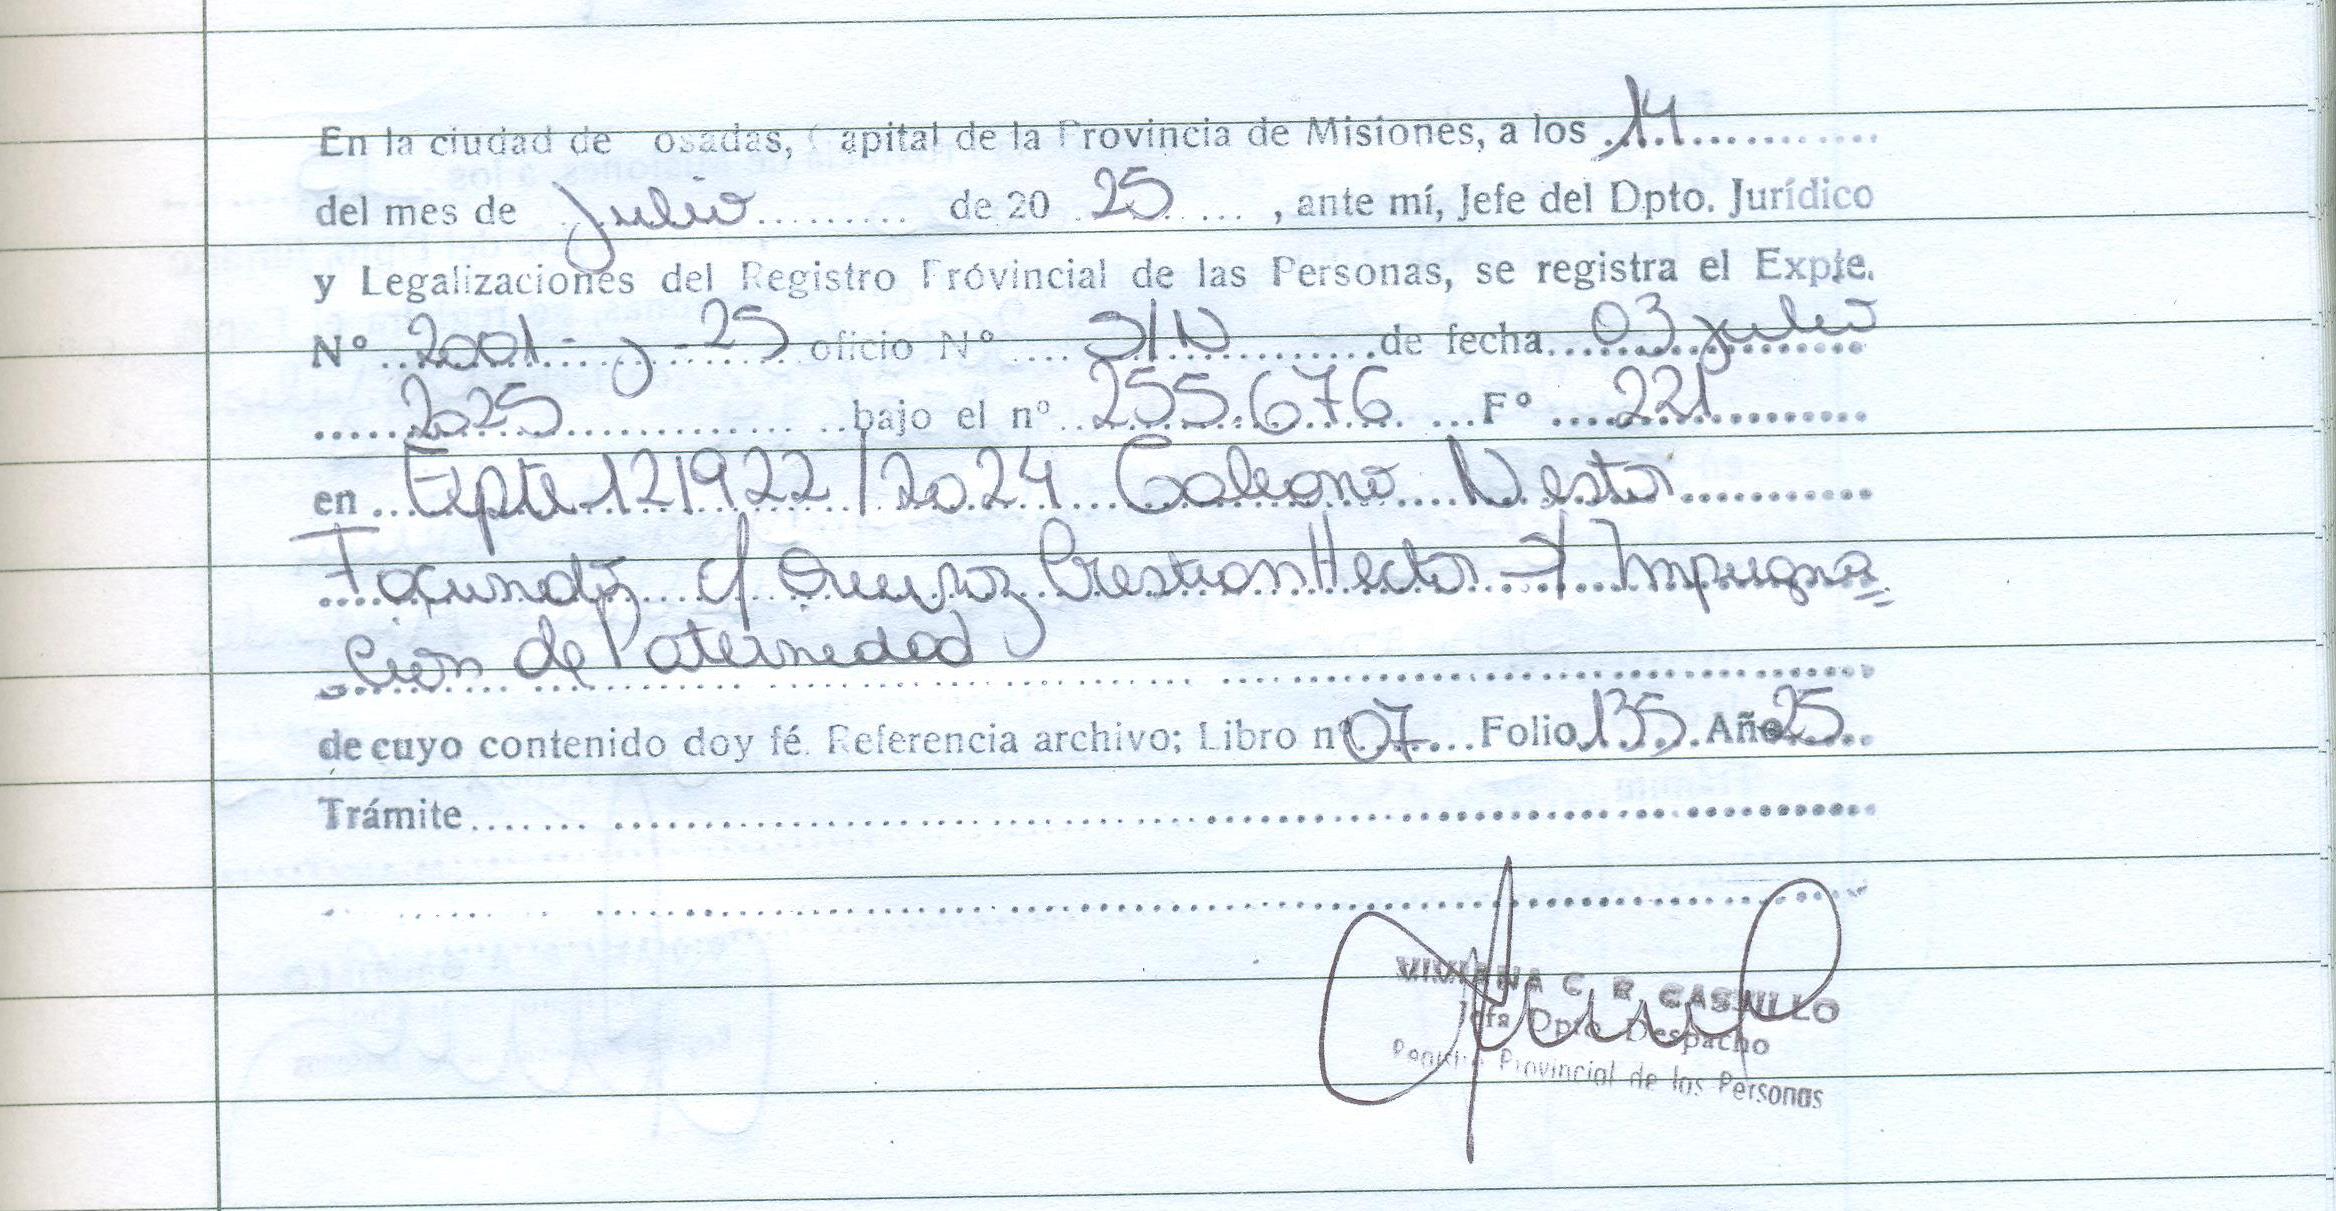 En la ciudad de osadas, Capital de la Provincia de Misiones, a los 14
del mes de julio de 20 25, ante mí, Jefe del Dpto. Jurídico
y Legalizaciones del Registro Provincial de las Personas, se registra el Expte.
N° 2001-J-25 oficio N° S/N de fecha 03 julio
2025 bajo el n° 255.676 F° 221
en Expte 121922/2024 Galeano Nestor
Facundo c/ Cristian Hector S/ Impugna=
cion de Paternidad
de cuyo contenido doy fé. Referencia archivo; Libro n° 07 Folio 135 Año 25
Trámite
VIVIANA C. R. CASTILLO
Jefa Dpto Despacho
Registro Provincial de las Personas